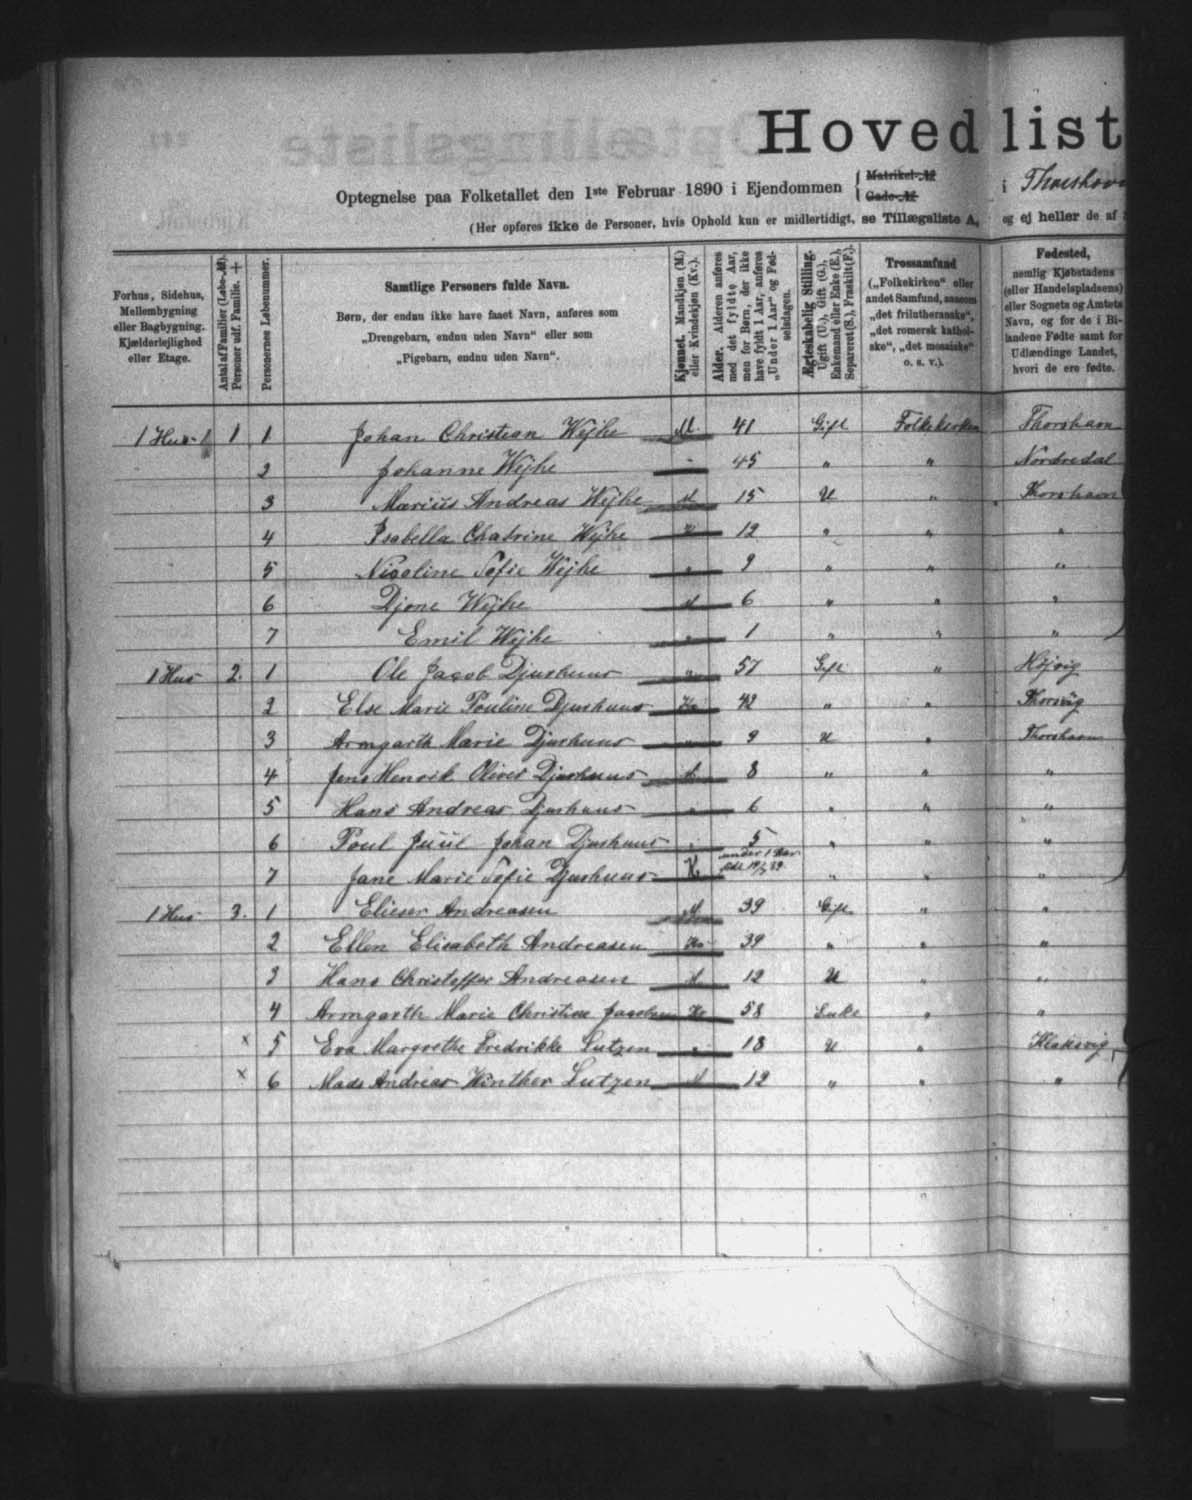 Hovedlist
Optegnelse paa Folketallet den 1ste Februar 1890 i Ejendommen { Matrikel-№ Gade-№ i Thorshavn
(Her opføres ikke de Personer, hvis Ophold kun er midlertidigt, se Tillægsliste A, og ej heller de af
Forhus, Sidehus, Mellembygning eller Bagbygning, Kjælderlejlighed eller Etage.
Antal af Familier (Løbe-№). Personer udf. Familie. +
Personernes Løbenummer.
Samtlige Personers fulde Navn.
Børn, der endnu ikke have faaet Navn, anføres som
„Drengebarn, endnu uden Navn“ eller som
„Pigebarn, endnu uden Navn“.
Kjønnet. Mandkjøn (M.) eller Kvindekjøn (Kv.).
Alder. Alderen anføres med det fyldte Aar, men for Børn, der ikke have fyldt 1 Aar, anføres „Under 1 Aar“ og Fødselsdagen.
Ægteskabelig Stilling. Ugift (U.), Gift (G.), Enkemand eller Enke (E.), Separeret (S.), Fraskilt (F.).
Trossamfund („Folkekirken“ eller andet Samfund, saasom „det frilutheranske“, „det romersk katholske“, „det mosaiske“ o. s. v.).
Fødested, nemlig Kjøbstadens (eller Handelspladsens) eller Sognets og Amtets Navn, og for de i Bilandene Fødte samt for Udlændinge Landet, hvori de ere fødte.
1 Hus 1 1 1 Johan Christian Wejhe M. 41 Gift Folkekirken Thorshavn
2 Johanne Wejhe " 45 " " Nordredal
3 Marius Andreas Wejhe M 15 U " Thorshavn
4 Isabella Chatrine Wejhe K 12 " " "
5 Nicoline Sofie Wejhe " 9 " " "
6 Djone Wejhe M 6 " " "
7 Emil Wejhe " 1 " " "
1 Hus 2. 1 Ole Jacob Djurhuus " 57 Gift " Højvig
2 Else Marie Pouline Djurhuus Kv 42 " " Thorsvig
3 Armgarth Marie Djurhuus " 9 U " Thorshavn
4 Jens Henrik Oliver Djurhuus M 8 " " "
5 Hans Andreas Djurhuus " 6 " " "
6 Poul Juul Johan Djurhuus " 5 " " "
7 Jane Marie Sofie Djurhuus K under 1 Aar " " "
1 Hus 3. 1 Elieser Andreasen M 39 Gift " "
2 Ellen Elisabeth Andreasen Kv 39 " " "
3 Hans Christoffer Andreasen M 12 U " "
4 Armgarth Marie Christine Jacobsen Kv 58 Enke " "
× 5 Eva Margrethe Fredrikke Lutzen " 18 U " Klaksvig
× 6 Mads Andreas Winther Lutzen M 12 " " "